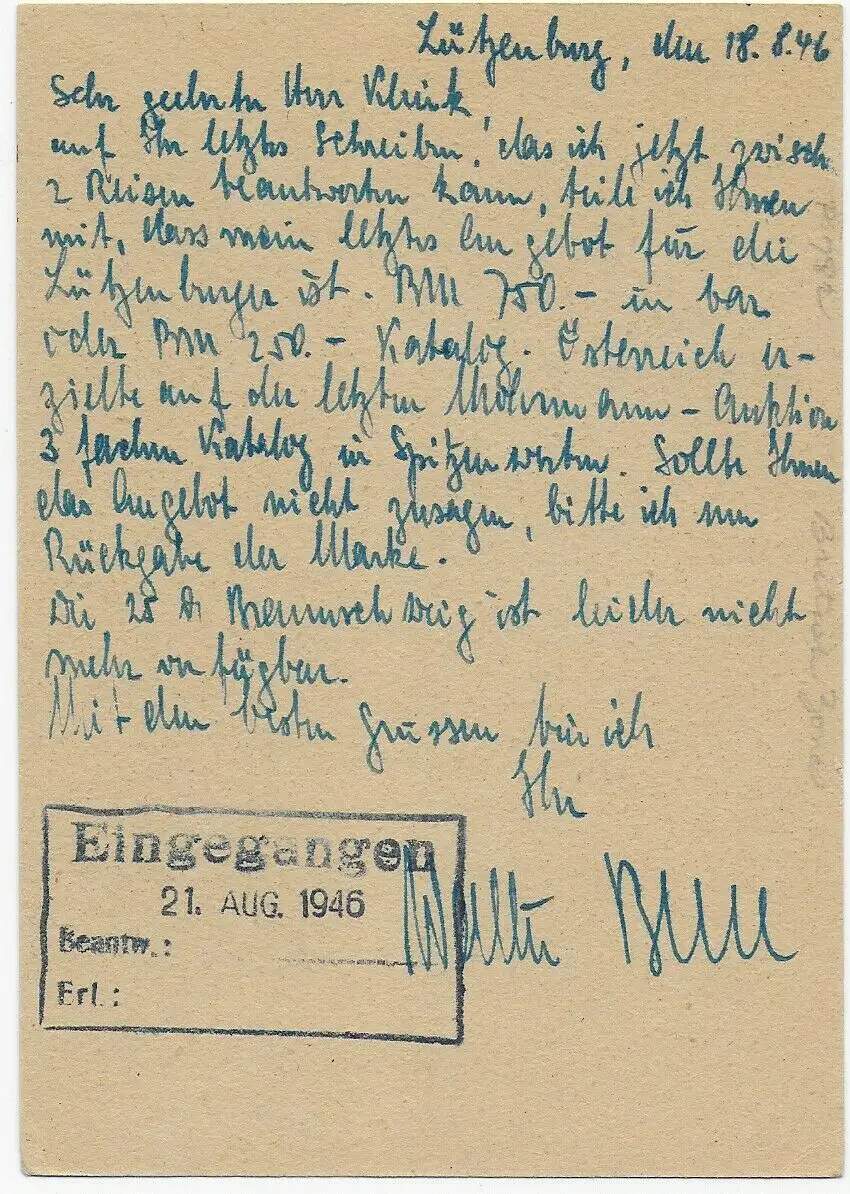 Lützenburg, den 18. 8. 46
Sehr geehrter Herr Klink,
auf Ihr letztes Schreiben, das ich jetzt zwisch.
2 Reisen beantworten kann, teile ich Ihnen
mit, dass mein letztes Angebot für die
Lützenburger ist. RM 750.- in bar
oder RM 250.- Katalog. Österreich er-
zielte auf der letzten Mohrmann-Auktion
3 fachen Katalog in Spitzenwerten. Sollte Ihnen
das Angebot nicht zusagen, bitte ich um
Rückgabe der Marke.
Die 25 Braunschweig ist leider nicht
mehr verfügbar.
Mit den besten Grüssen bin ich
Ihr
Walter
Eingegangen
21. AUG. 1946
Beantw.:
Erl.: